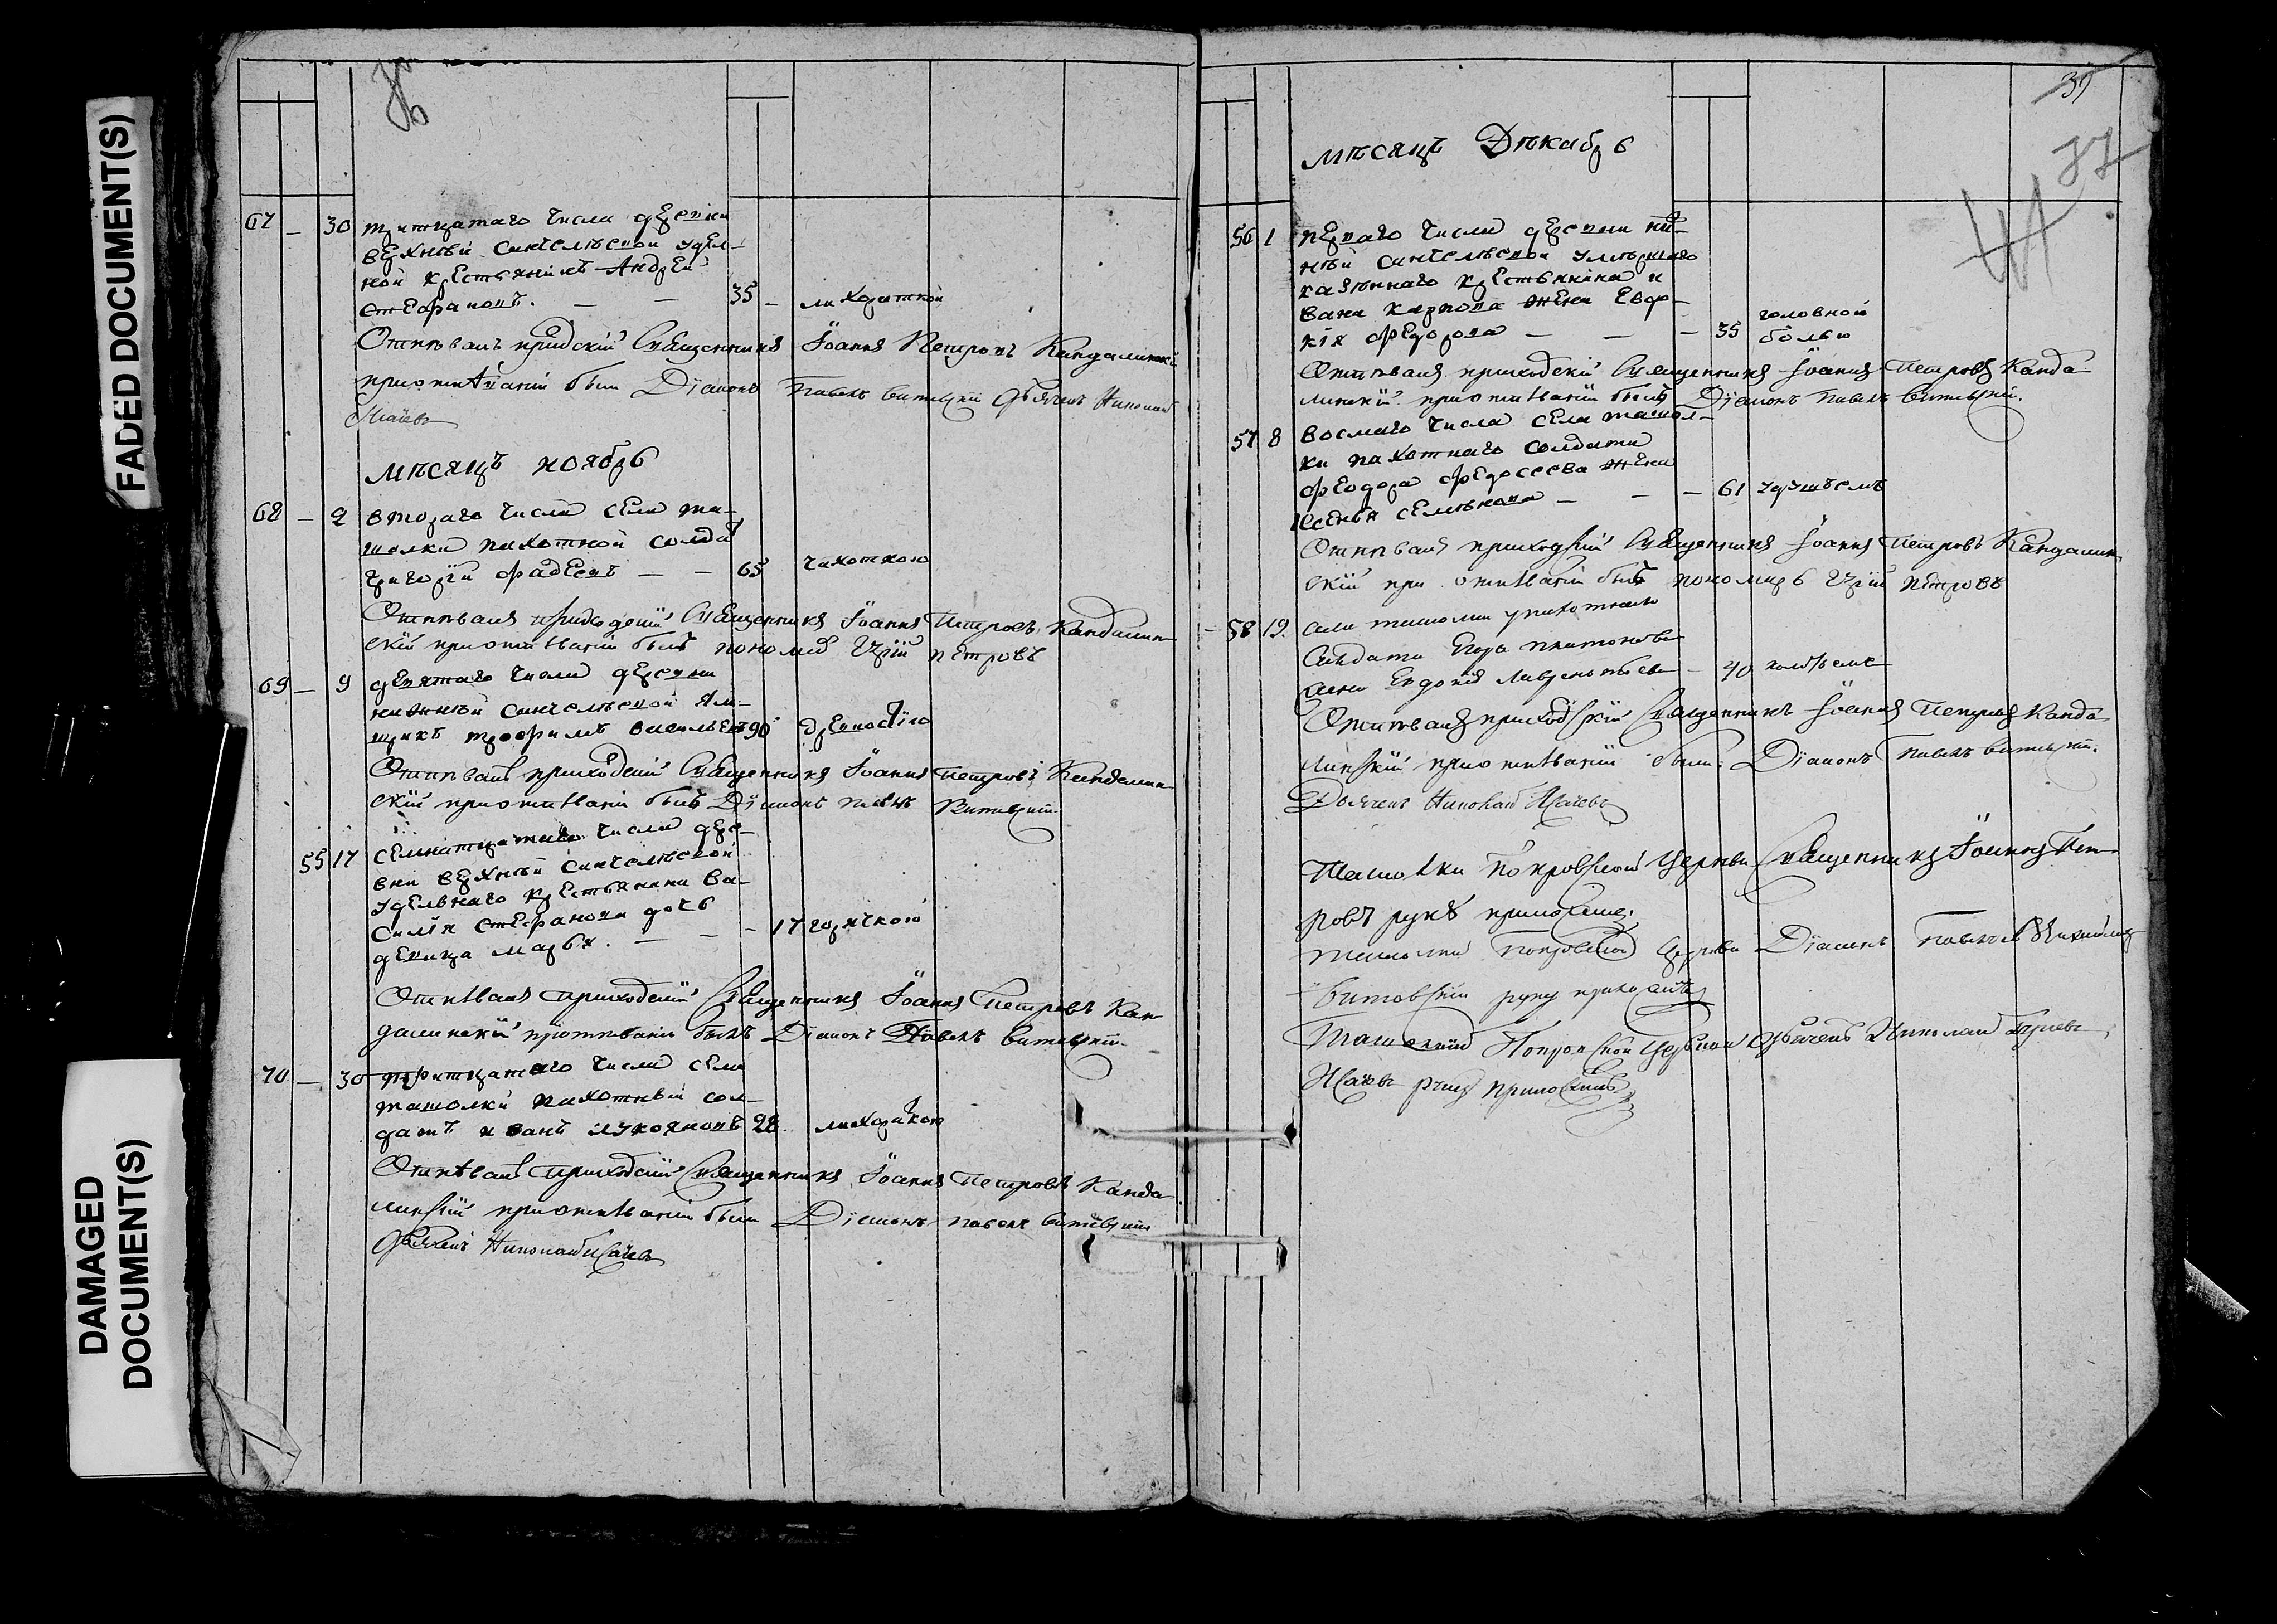 FADED DOCUMENT(S)
DAMAGED
DOCUMENT(S)
67 — 30 тритцатаго числа дереvни
верхнѣй санчелѣевой удел-
ной крестьянинъ Андрей
стефановъ. — — 35 — лихораткой
Отпѣвалъ приходскій Священникъ Іоаннъ Петровъ Кандалинскій
приотпѣваніи были Діаконъ Павелъ дьячекъ Николай
Исаіевъ
мѣсяцъ ноябрь
68 — 2 втораго числа села та-
шолки пахотной солдат
григорій фадеевъ — — 65 чахоткою
Отпѣвалъ приходскій Священникъ Іоаннъ Петровъ Кандалин
скій приотпѣваніи былъ пономарь петровъ
69 — 9 девятаго числа деревни
нижнѣй санчелѣевой ям-
щикъ трофимъ васильевъ 90 древностію
Отпѣвалъ приходскій Священникъ Іоаннъ Петровъ Кандалин
скій приотпѣваніи былъ Діаконъ павелъ
55 17 семнатцатаго числа дере-
вни верхнѣй санчелѣевой
удельнаго крестьянина Ва-
силія стефанова дочь
девица марья. — — — 17 горячкою
Отпѣвалъ приходскій Священникъ Іоаннъ Петровъ Кан
далинскій приотпѣваніи былъ Діаконъ Павелъ
70 — 30 тритцатаго числа села
ташолки пахотный сол-
датъ иванъ лукояновъ 28. лихораткою
Отпѣвалъ приходскій Священникъ Іоаннъ Петровъ Канда
линскій приотпѣваніи были Діаконъ павелъ
дьячекъ Николай Исаіевъ
39
37
мѣсяцъ Дѣкабрь
56 1 перваго числа деревни ни-
жнѣй санчелѣевой умершаго
казеннаго крестьянина и
вана карпова жена Евдо-
кія федорова — — — 35 головной
болью
Отпѣвалъ приходскій Священникъ Іоаннъ Петровъ Канда
линскій приотпѣваніи былъ Діаконъ Павелъ
57 8 восмаго числа села ташол-
ки пахотнаго солдата
феодора федосеева жена
ксенья семѣнова — — — 61 удушьемъ
Отпѣвалъ приходскій Священникъ Іоаннъ Петровъ Кандалин
скій при отпѣваніи былъ пономарь петровъ
58 19. села ташолки пахотнаго
Салдата Егора платонова
жена Евдокія — 40
Отпѣвалъ приходскій Священникъ Іоаннъ Петровъ Канда
линскій приотпѣваніи были: Діаконъ Павелъ
Дьячекъ Николай Исаіевъ
Ташолки Покровской Церкви Священникъ Іоаннъ Пет
ровъ руку приложилъ.
ташолки Покровской Церкви Діаконъ Павелъ
руку приложилъ
Покровской Церкви дьячекъ Николай
Исаіевъ руку приложилъ